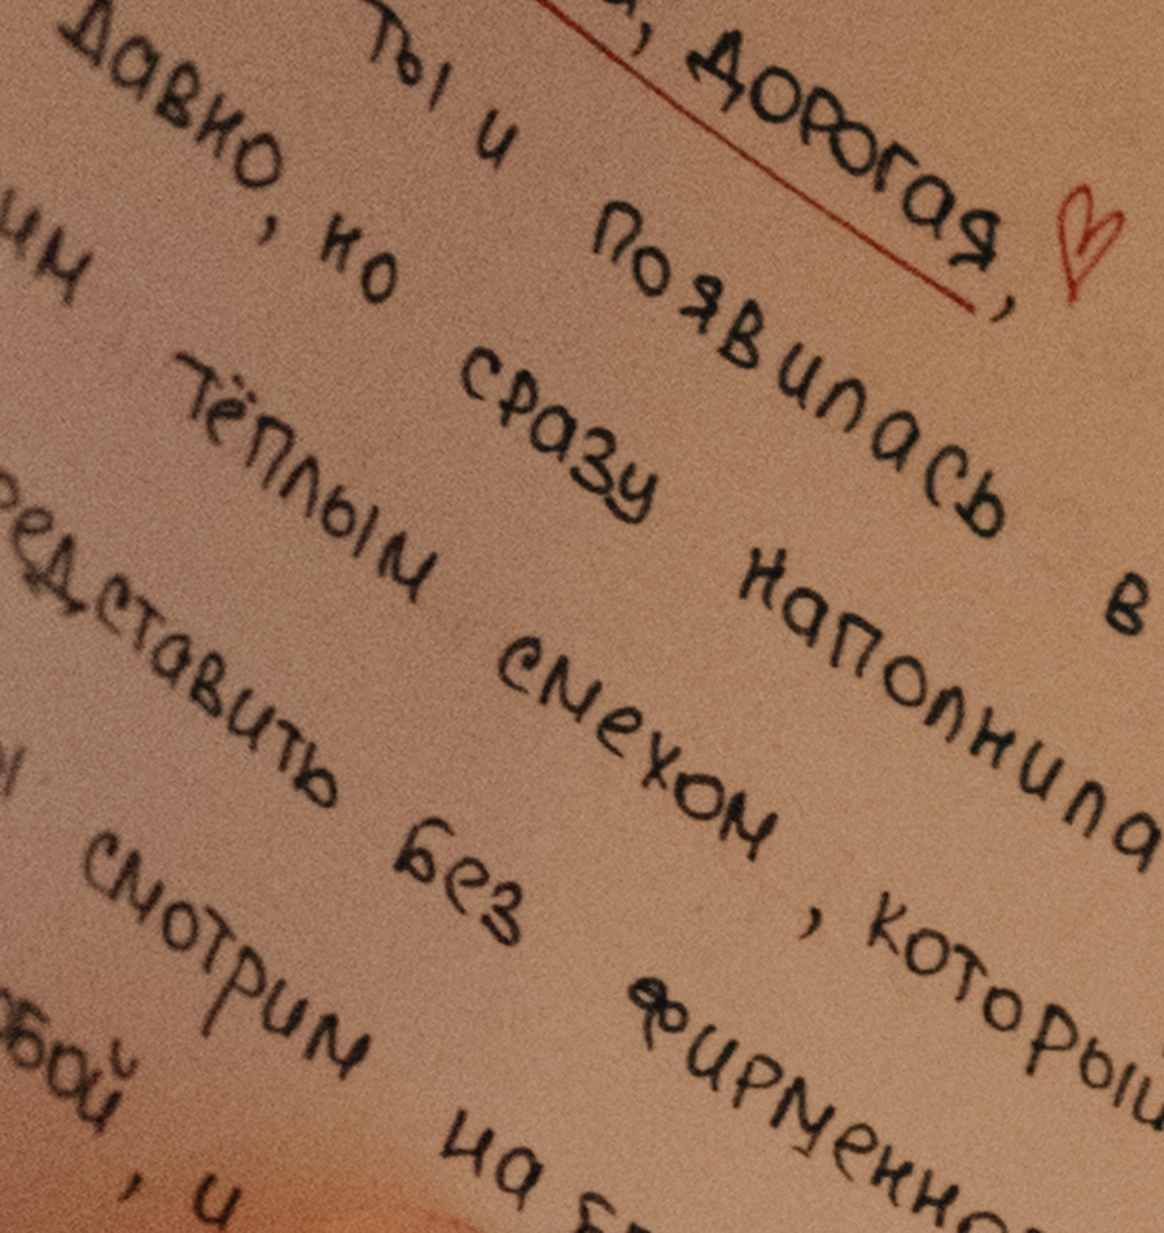 , дорогая,
Ты и появилась в
давно, но сразу наполнила
им тёплым смехом, который
редставить без фирменно
ы смотрим на
обой, и